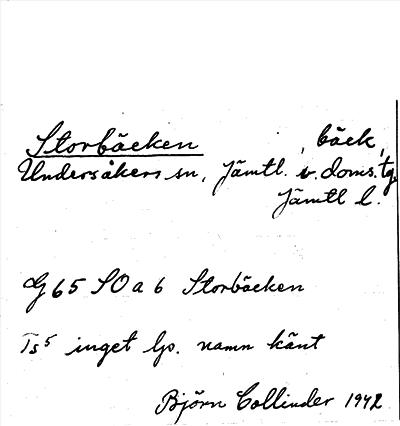 Storbäcken, bäck,
Undersåkers sn, Jämtl. v. doms.tg,
Jämtl l.
G 65 SO a 6 Storbäcken
Ts5 inget lp. namn känt
Björn Collinder 1942